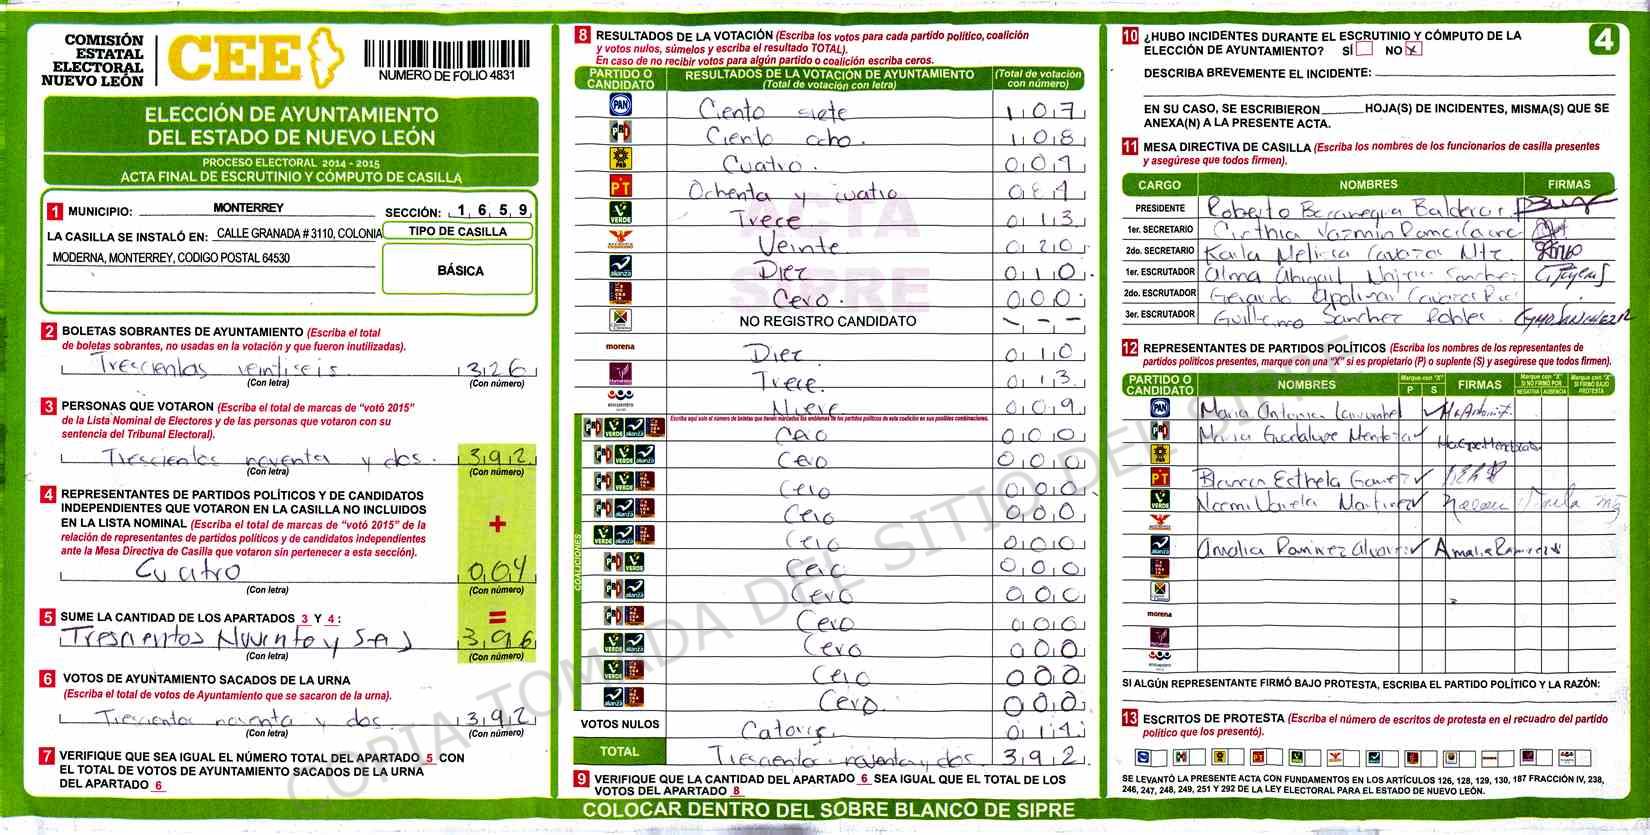 COMISIÓN
ESTATAL
ELECTORAL
NUEVO LEÓN
CEE
NUMERO DE FOLIO 4831
ELECCIÓN DE AYUNTAMIENTO
DEL ESTADO DE NUEVO LEÓN
PROCESO ELECTORAL 2014 - 2015
ACTA FINAL DE ESCRUTINIO Y CÓMPUTO DE CASILLA
1 MUNICIPIO: MONTERREY SECCIÓN: 1 6 5 9
LA CASILLA SE INSTALÓ EN: CALLE GRANADA # 3110, COLONIA
MODERNA, MONTERREY, CODIGO POSTAL 64530
TIPO DE CASILLA
BÁSICA
2 BOLETAS SOBRANTES DE AYUNTAMIENTO (Escriba el total
de boletas sobrantes, no usadas en la votación y que fueron inutilizadas).
Trescientas veintiseis 326
(Con letra) (Con número)
3 PERSONAS QUE VOTARON (Escriba el total de marcas de “votó 2015”
de la Lista Nominal de Electores y de las personas que votaron con su
sentencia del Tribunal Electoral).
Trescientos noventa y dos. 392
(Con letra) (Con número)
4 REPRESENTANTES DE PARTIDOS POLÍTICOS Y DE CANDIDATOS
INDEPENDIENTES QUE VOTARON EN LA CASILLA NO INCLUIDOS
EN LA LISTA NOMINAL (Escriba el total de marcas de “votó 2015” de la
relación de representantes de partidos políticos y de candidatos independientes
ante la Mesa Directiva de Casilla que votaron sin pertenecer a esta sección).
+
Cuatro 004
(Con letra) (Con número)
5 SUME LA CANTIDAD DE LOS APARTADOS 3 Y 4:
=
396
(Con letra) (Con número)
6 VOTOS DE AYUNTAMIENTO SACADOS DE LA URNA
(Escriba el total de votos de Ayuntamiento que se sacaron de la urna).
Trescientos noventa y dos. 392
(Con letra) (Con número)
7 VERIFIQUE QUE SEA IGUAL EL NÚMERO TOTAL DEL APARTADO 5 CON
EL TOTAL DE VOTOS DE AYUNTAMIENTO SACADOS DE LA URNA
DEL APARTADO 6
8 RESULTADOS DE LA VOTACIÓN (Escriba los votos para cada partido político, coalición
y votos nulos, súmelos y escriba el resultado TOTAL).
En caso de no recibir votos para algún partido o coalición escriba ceros.
PARTIDO O CANDIDATO
RESULTADOS DE LA VOTACIÓN DE AYUNTAMIENTO
(Total de votación con letra)
(Total de votación con número)
PAN Ciento siete 107
PRI Ciento ocho. 108
PRD Cuatro. 004
PT Ochenta y cuatro 084
VERDE Trece 013
Veinte 020
alianza Diez 010
Cero. 000
NO REGISTRO CANDIDATO - - -
morena Diez 010
Trece. 013
Nueve 009
COALICIONES
Escriba aquí solo el número de boletas que tienen marcados los emblemas de los partidos políticos de esta coalición en sus posibles combinaciones.
Cero 000
Cero 000
Cero 000
Cero 000
Cero 000
Cero 000
Cero 000
Cero 000
Cero 000
Cero 000
Cero 000
VOTOS NULOS Catorce 014
TOTAL Trescientos noventa y dos. 392
9 VERIFIQUE QUE LA CANTIDAD DEL APARTADO 6 SEA IGUAL QUE EL TOTAL DE LOS
VOTOS DEL APARTADO 8
COLOCAR DENTRO DEL SOBRE BLANCO DE SIPRE
ACTA
SIPRE
COPIA TOMADA DEL SITIO DEL SIPRE
10 ¿HUBO INCIDENTES DURANTE EL ESCRUTINIO Y CÓMPUTO DE LA
ELECCIÓN DE AYUNTAMIENTO? SÍ NO X
4
DESCRIBA BREVEMENTE EL INCIDENTE:
EN SU CASO, SE ESCRIBIERON HOJA(S) DE INCIDENTES, MISMA(S) QUE SE
ANEXA(N) A LA PRESENTE ACTA.
11 MESA DIRECTIVA DE CASILLA (Escriba los nombres de los funcionarios de casilla presentes
y asegúrese que todos firmen).
CARGO NOMBRES FIRMAS
PRESIDENTE Roberto Balderas
1er. SECRETARIO Cinthia Yazmin
2do. SECRETARIO Karla Melissa Cavazos Mtz.
1er. ESCRUTADOR Alma Abigail Sanchez
2do. ESCRUTADOR Gerardo Apolinar Cavazos
3er. ESCRUTADOR Guillermo Sanchez Robles
12 REPRESENTANTES DE PARTIDOS POLÍTICOS (Escriba los nombres de los representantes de
partidos políticos presentes, marque con una “X” si es propietario (P) o suplente (S) y asegúrese que todos firmen).
PARTIDO O CANDIDATO NOMBRES Marque con “X” P S FIRMAS Marque con “X” SI NO FIRMÓ POR NEGATIVA AUSENCIA Marque con “X” SI FIRMÓ BAJO PROTESTA
PAN Maria Antonia
PRI Maria Guadalupe Mendoza
PRD
PT Blanca Esthela Gamez
VERDE Noemi Varela Martinez
alianza Amalia Ramirez Alvarez Amalia Ramirez
morena
SI ALGÚN REPRESENTANTE FIRMÓ BAJO PROTESTA, ESCRIBA EL PARTIDO POLÍTICO Y LA RAZÓN:
13 ESCRITOS DE PROTESTA (Escriba el número de escritos de protesta en el recuadro del partido
político que los presentó).
SE LEVANTÓ LA PRESENTE ACTA CON FUNDAMENTOS EN LOS ARTÍCULOS 126, 128, 129, 130, 187 FRACCIÓN IV, 238,
246, 247, 248, 249, 251 Y 292 DE LA LEY ELECTORAL PARA EL ESTADO DE NUEVO LEÓN.